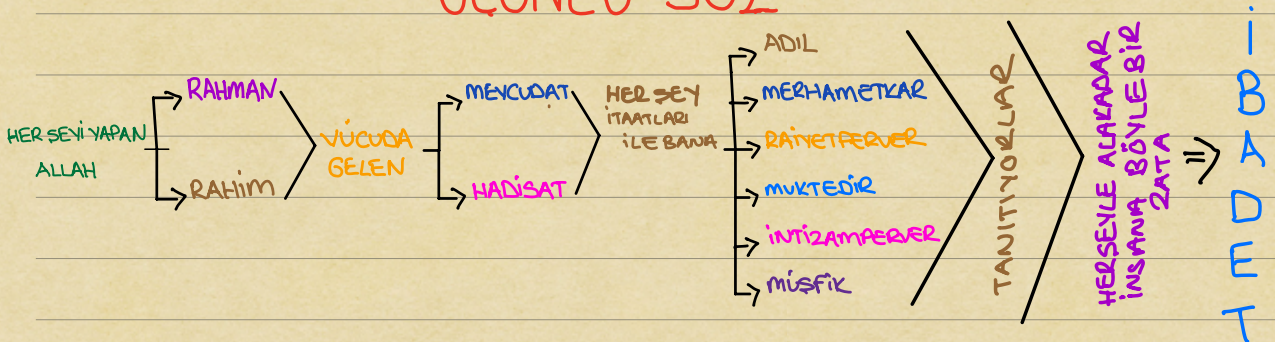 ÜÇÜNCÜ SÖZ
HER ŞEYİ YAPAN
ALLAH
RAHMAN
RAHİM
VÜCUDA
GELEN
MEVCUDAT
HADİSAT
HER ŞEY
İTAATLARI
İLE BANA
ADIL
MERHAMETKAR
RAİYETPERVER
MUKTEDİR
İNTİZAMPERVER
MÜŞFİK
TANITIYORLAR
HERŞEYLE ALAKADAR
İNSANA BÖYLE BİR
ZATA
⇒
İBADET